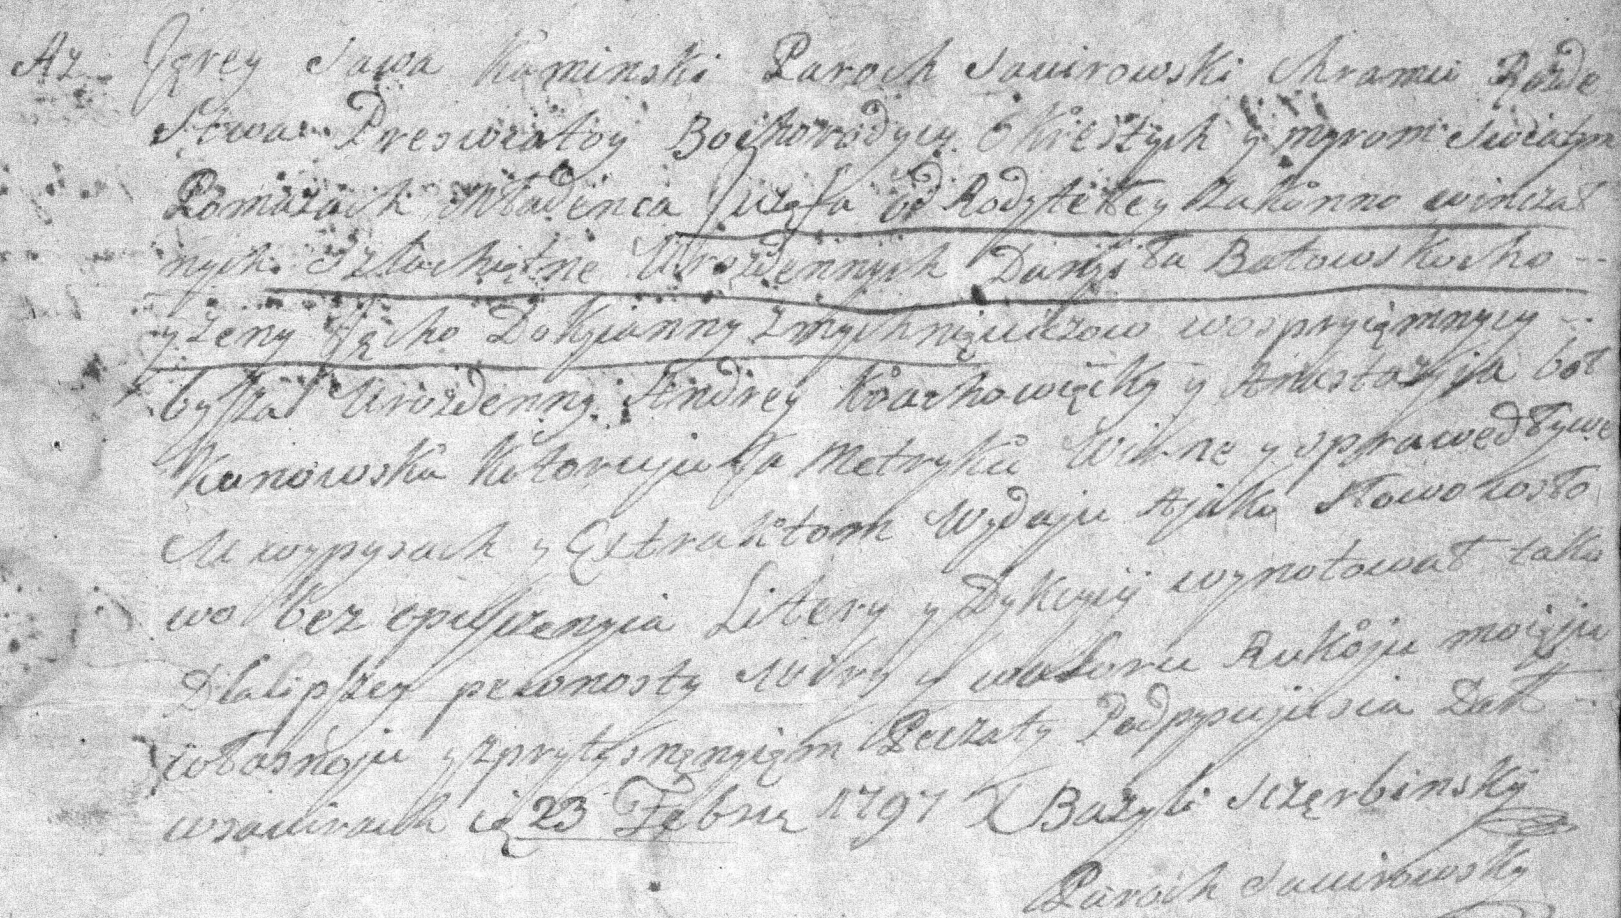 Az Jęrey Sawa Kaminski Paroch Sawirowski Chramu Rożde
Stwa Preswiatoy Bochorodycy Okrestych y myrom Swiatym
Pomazach Mładenca Juzefa od Rodytełey Zakonno winczał
nych Szlachętne Urożdennych Danyła Batowskocho
y żeny Jęcho Dokyianny z Mychnięwiczow wospryięmnycy
bysza Urożdenny Andrey Krachowięcky y Anastazyja boł
Kanowska Kotoruju Ja Metryku Wirne y sprawedływe
w wypysach y Extraktom Wydaju Ajako Słowo wosło
wo bez opuszczenyia Litery y Dykcyiy wynotował tako
Dla lipszey pewnosty wiry y waloru Rukoju moięju
własnoju y z prytysnęnyięm Peczaty Podpysujusia Dat
w Sawirach ię 23 Febru 1797 X Bazyli Sczęrbinsky
Paroch Sawirowsky